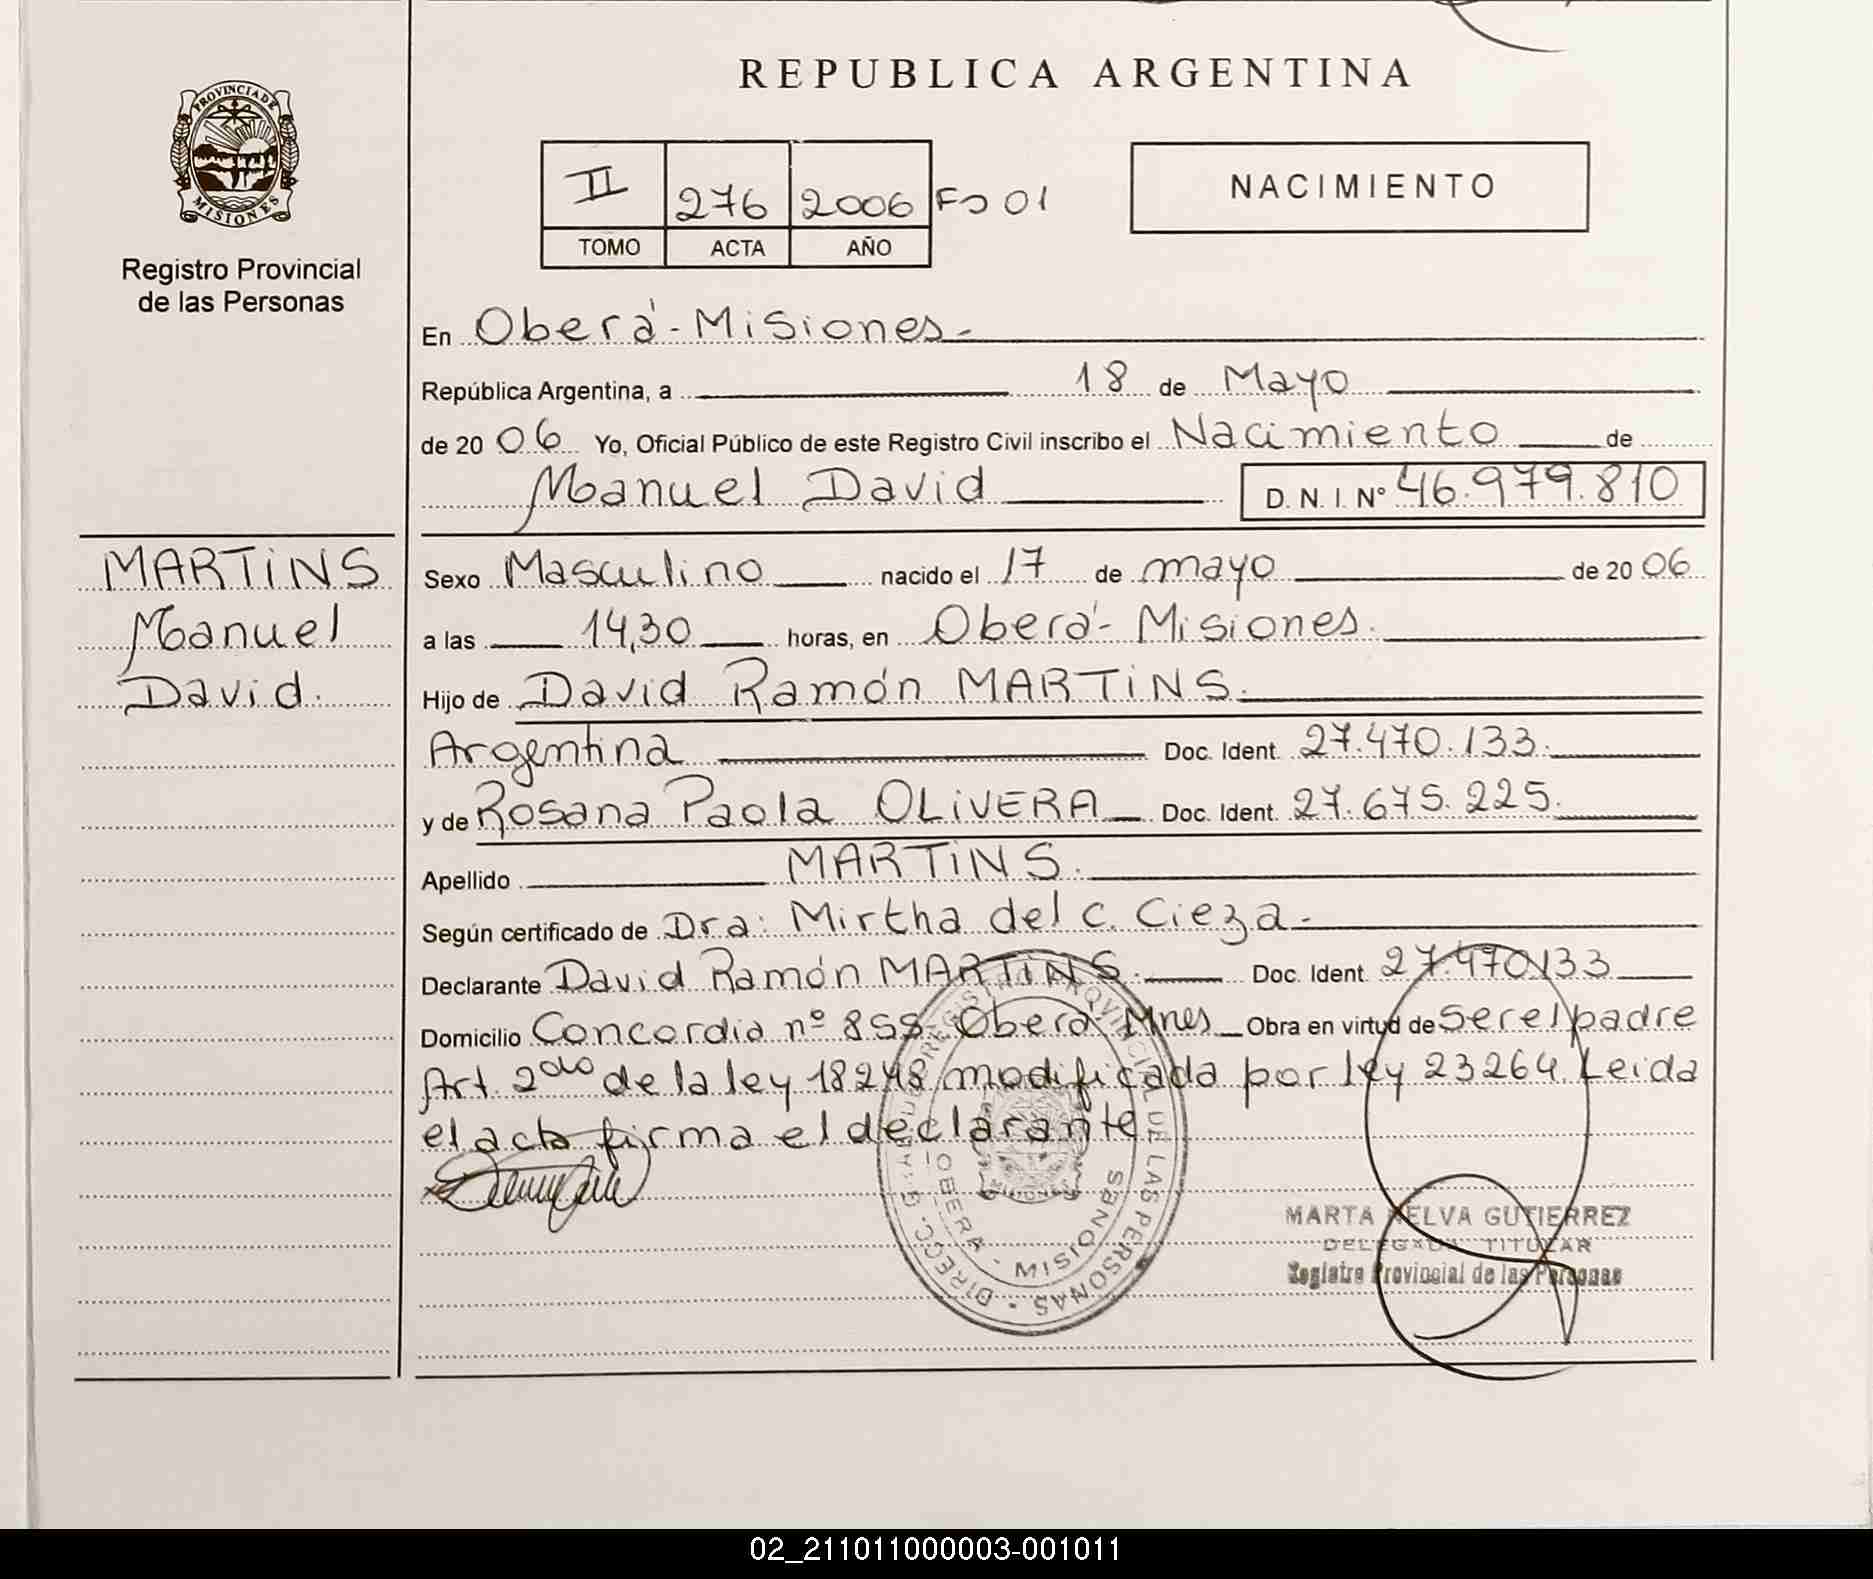 REPUBLICA ARGENTINA
PROVINCIA DE
MISIONES
Registro Provincial
de las Personas
II 276 2006 Fo 01
TOMO ACTA AÑO
NACIMIENTO
En Oberá - Misiones -
República Argentina, a 18 de Mayo
de 20 06 Yo, Oficial Público de este Registro Civil inscribo el Nacimiento de
Manuel David D. N. I. Nº 46.979.810
MARTiNS
Manuel
David.
Sexo Masculino nacido el 17 de mayo de 20 06
a las 14,30 horas, en Oberá - Misiones.
Hijo de David Ramón MARTiNS.
Argentina Doc. Ident. 27.470.133.
y de Rosana Paola OLiVERA Doc. Ident. 27.675.225.
Apellido MARTiNS.
Según certificado de Dra: Mirtha del C. Cieza -
Declarante David Ramón MARTiNS. Doc. Ident. 27.470.133
Domicilio Concordia nº 858 Oberá Mnes Obra en virtud de Ser el padre
Art. 2do de la ley 18248 modificada por ley 23264. Leida
el acta firma el declarante
REGISTRO PROVINCIAL DE LAS PERSONAS
OBERA - MISIONES
MISIONES
MARTA NELVA GUTIERREZ
DELEGADA TITULAR
Registro Provincial de las Personas
02_211011000003-001011